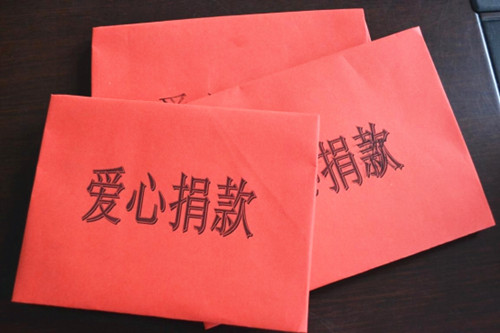 爱心捐款
心捐款